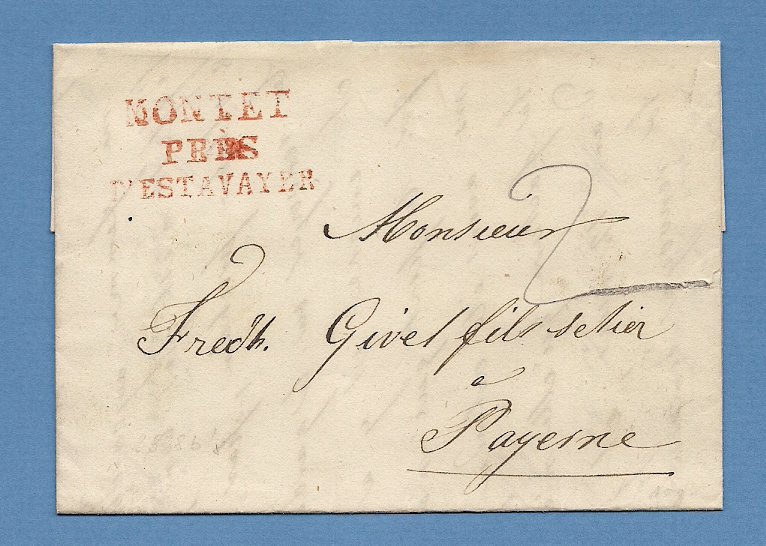 MONTET
PRÈS
D'ESTAVAYER
2
Monsieur
Fredk. Givel fils selier
à
Payerne